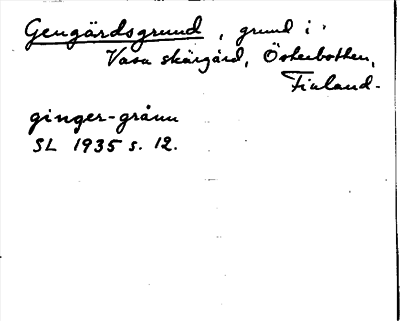 Gengärdsgrund, grund i
Vasa skärgård, Österbotten,
Finland.
ginger-grånn
SL 1935 s. 12.